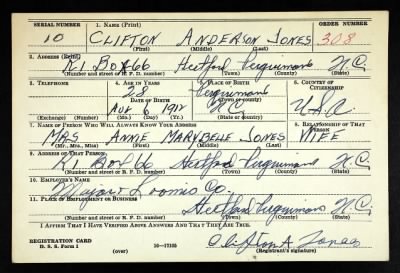 SERIAL NUMBER 1. NAME (Print) ORDER NUMBER
10 CLIFTON ANDERSON JONES 308
(First) (Middle) (Last)
2. ADDRESS (Print)
R1 BOX 66 Hertford Perquimans N.C.
(Number and street or R. F. D. number) (Town) (County) (State)
3. TELEPHONE 4. AGE IN YEARS 5. PLACE OF BIRTH 6. COUNTRY OF CITIZENSHIP
28 Perquimans
DATE OF BIRTH (Town or county)
1912 N.C. U.S.A.
(Exchange) (Number) (Mo.) (Day) (Yr.) (State or country)
7. NAME OF PERSON WHO WILL ALWAYS KNOW YOUR ADDRESS 8. RELATIONSHIP OF THAT PERSON
MRS ANNIE MARYBELLE JONES WIFE
(Mr., Mrs., Miss) (First) (Middle) (Last)
9. ADDRESS OF THAT PERSON
R1 BOX 66 Hertford Perquimans N.C.
(Number and street or R. F. D. number) (Town) (County) (State)
10. EMPLOYER'S NAME
Major & Loomis Co.
11. PLACE OF EMPLOYMENT OR BUSINESS
Hertford Perquimans N.C.
(Number and street or R. F. D. number) (Town) (County) (State)
I AFFIRM THAT I HAVE VERIFIED ABOVE ANSWERS AND THAT THEY ARE TRUE.
REGISTRATION CARD
D. S. S. Form 1 (over) 16—17105 Clifton A Jones
(Registrant's signature)